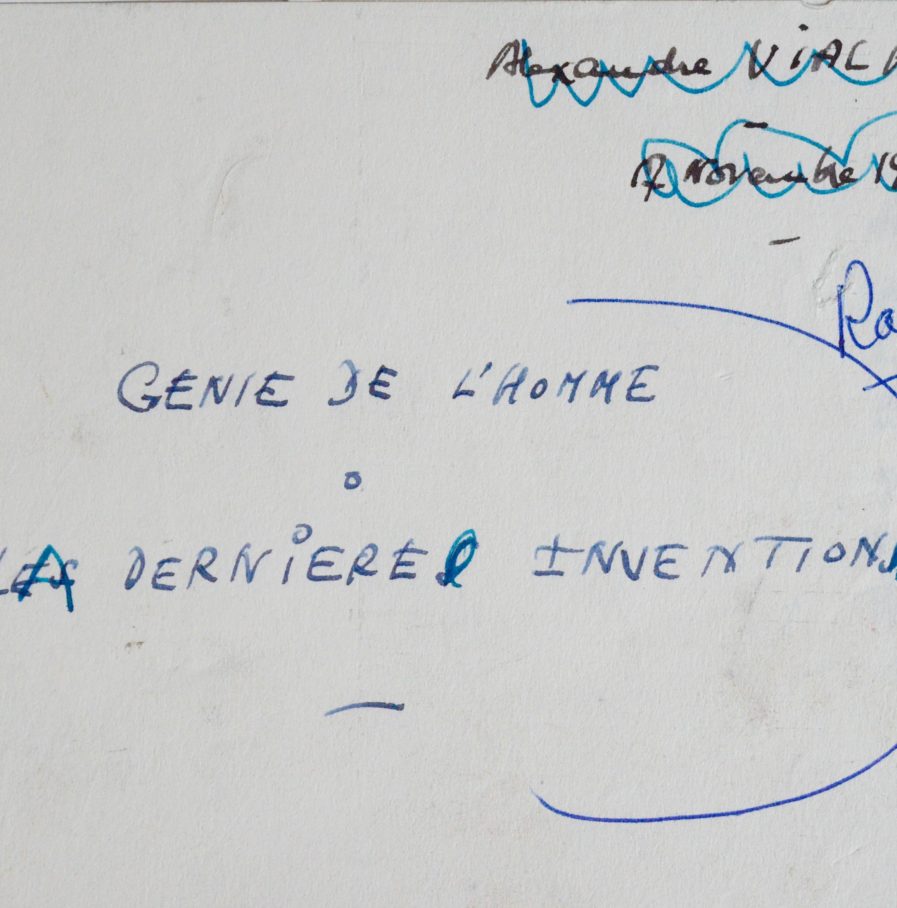 Alexandre VIAL
7 Novembre 19
Ro
GENIE DE L'HOMME
LA DERNIERE INVENTION